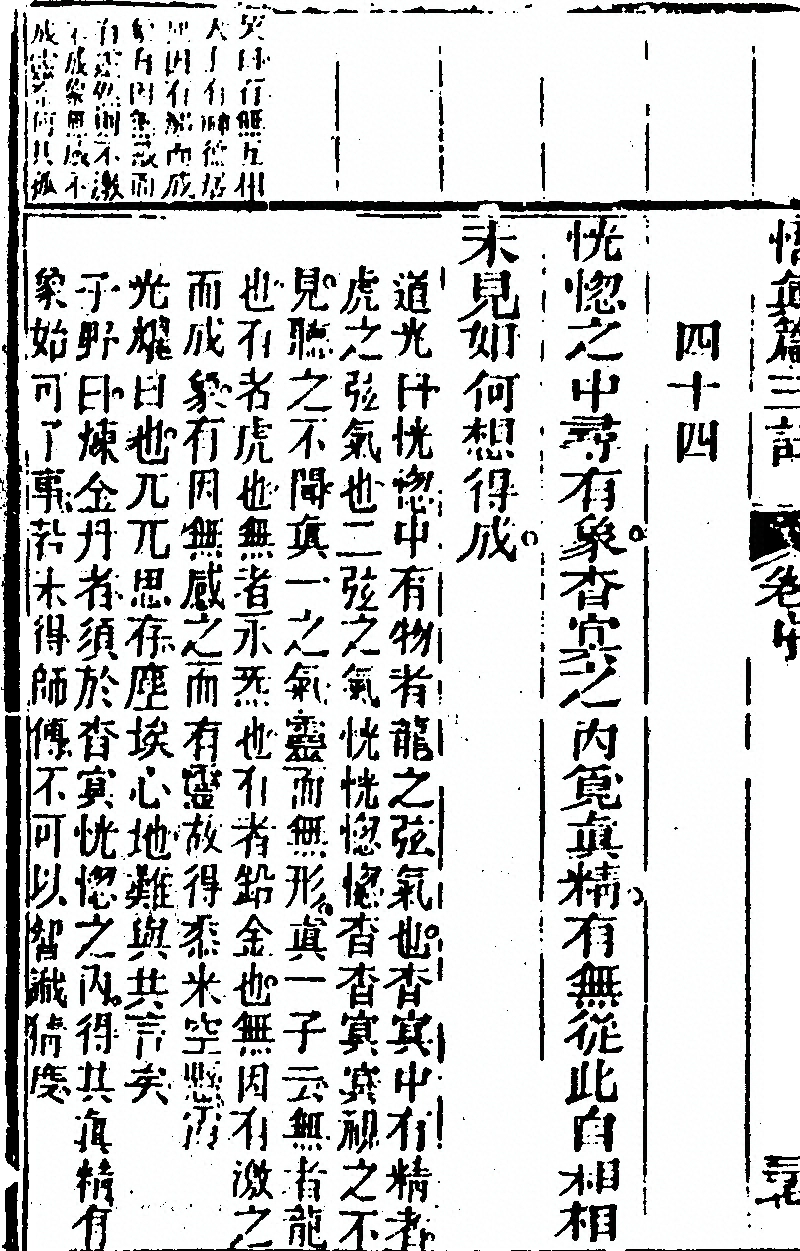 悟真篇三註 卷中
四十四
恍惚之中尋有象。杳冥之內覓真精。有無從此自相相
未見如何想得成。
道光曰恍惚中有物者龍之弦氣也。杳冥中有精者
虎之弦氣也二弦之氣恍恍惚惚杳杳冥冥視之不
見。聽之不聞真一之氣靈而無形。真一子云無者龍
也。有者虎也無者汞炁也有者鉛金也。無因有激之
而成象。有因無感之而有靈故得黍米空懸霄
光耀日也。兀兀思存塵埃心地難與共言矣
子野曰。煉金丹者須於杳冥恍惚之內。得其真精有
象始可了事。若未得師傳不可以智識猜度
曰有無互相
因有激而成
象有因無感而
有靈然則不激
不成象無感不
成靈何其孤